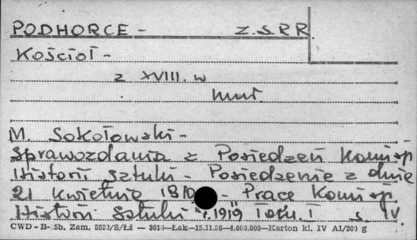 PODHORCE - Z.S.R.R.
Kościoł -
z XVIII. w
mur.
M. Sokołowski -
Sprawozdania z Posiedzeń Komisp
Historii Sztuki - Posiedzenie z dnia
21 kwietnia - Prace Komisp
Historii Sztuki 1919 Tom. I s. IV
CWD - B-5b. Zam. 5823/S/ŁŻ — Łak—15.11.56—4.000.000—Karton kl. IV A1/200 g